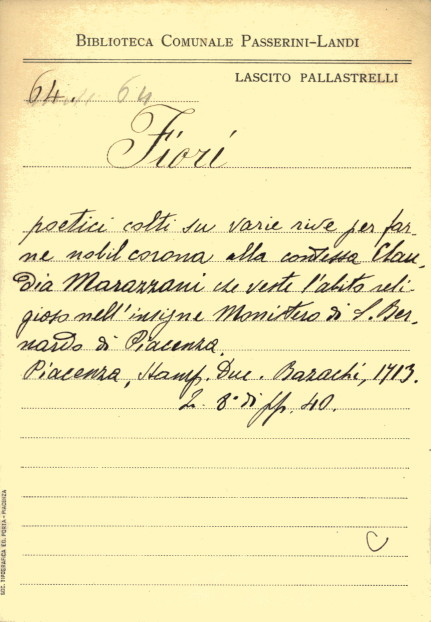 BIBLIOTECA COMUNALE PASSERINI-LANDI
LASCITO PALLASTRELLI
64. 64
Fiori
poetici colti su varie rive per far-
ne nobil corona alla contessa Clau-
dia Marazzani che veste l'abito reli-
gioso nell'insigne Monistero di S. Ber-
nardo di Piacenza.
Piacenza, Stamp. Duc. Bazachi, 1713.
8° di pp. 40.
C
SOC. TIPOGRAFICA ED. PORTA - PIACENZA